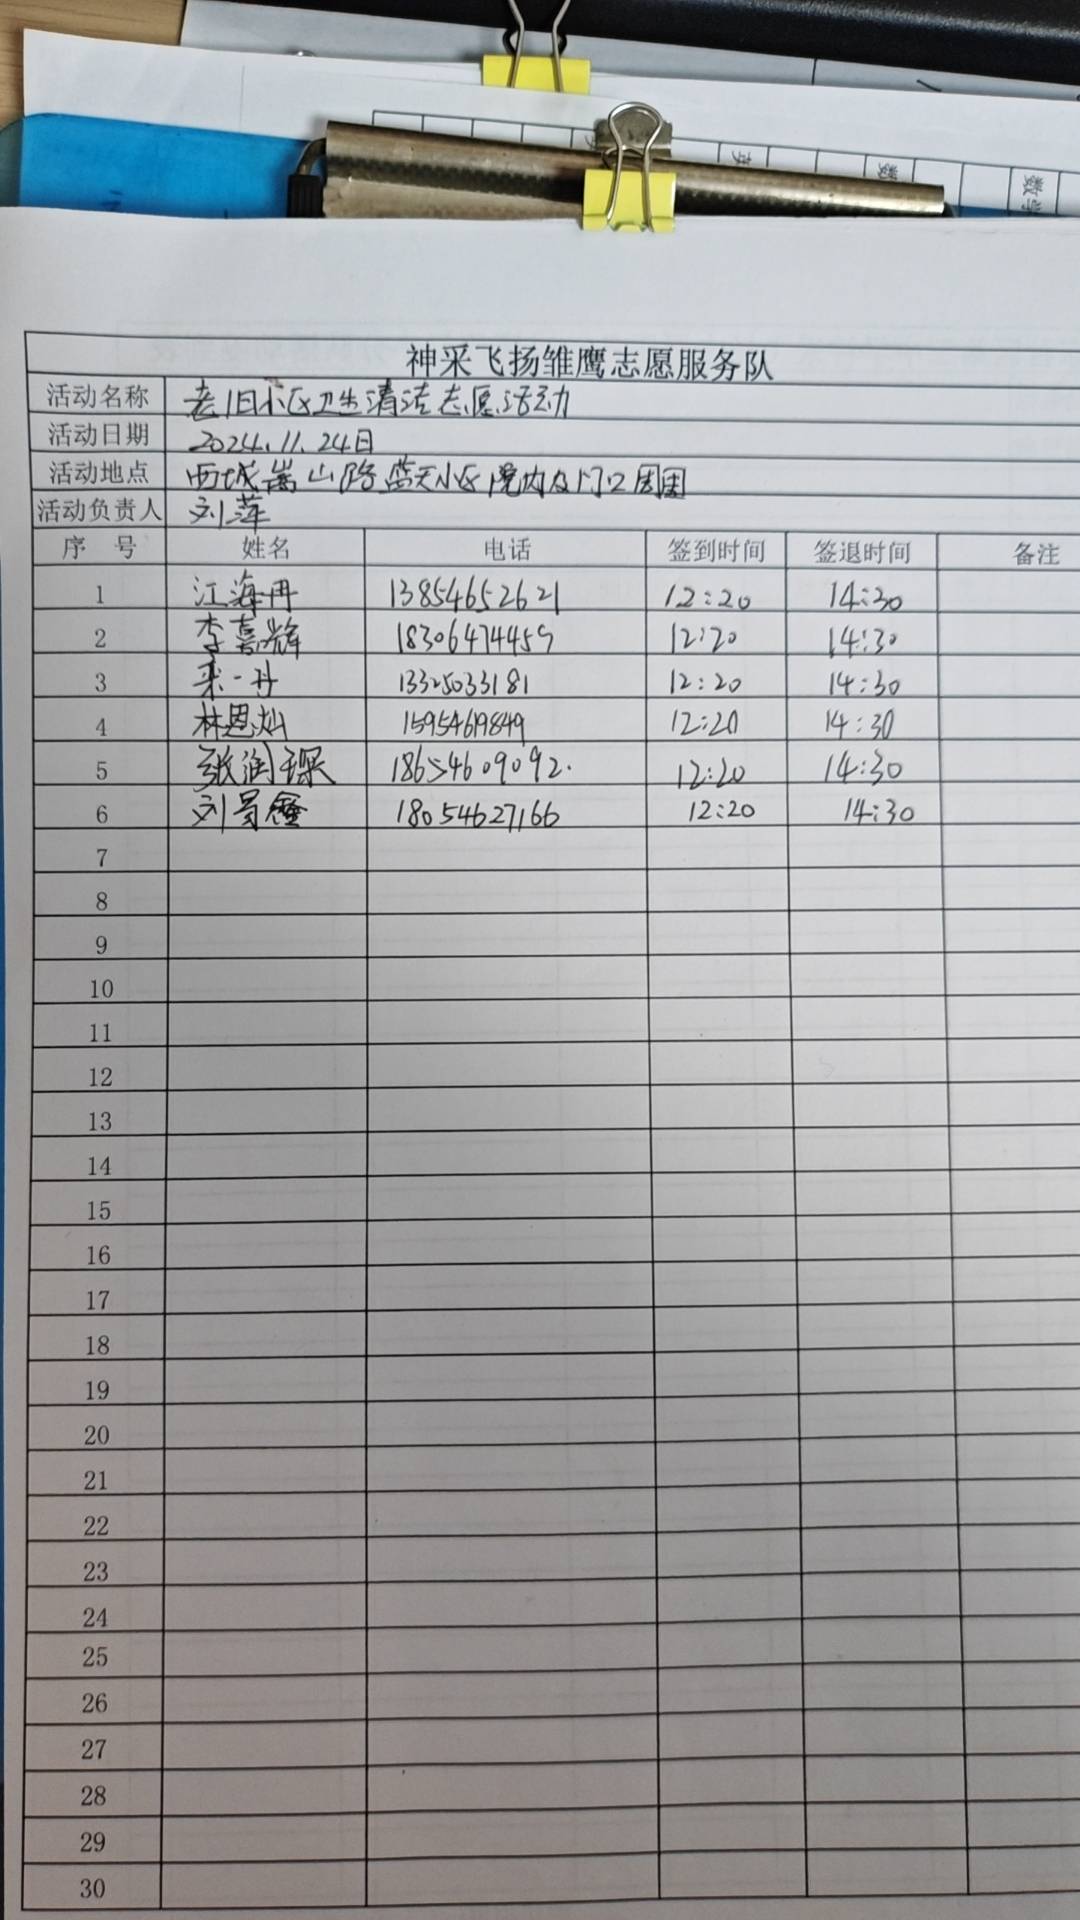 神采飞扬雏鹰志愿服务队
活动名称 老旧小区卫生清洁志愿活动
活动日期 2024.11.24日
活动地点 西城嵩山路蓝天小区院内及门口周围
活动负责人 刘萍
序 号 姓名 电话 签到时间 签退时间 备注
1 江海冉 13854652621 12:20 14:30
2 李嘉辉 18306474459 12:20 14:30
3 宋一丹 13325033181 12:20 14:30
4 林恩灿 15954619849 12:20 14:30
5 张润琛 18654609092. 12:20 14:30
6 刘昺鑫 18054627166 12:20 14:30
7
8
9
10
11
12
13
14
15
16
17
18
19
20
21
22
23
24
25
26
27
28
29
30
数学